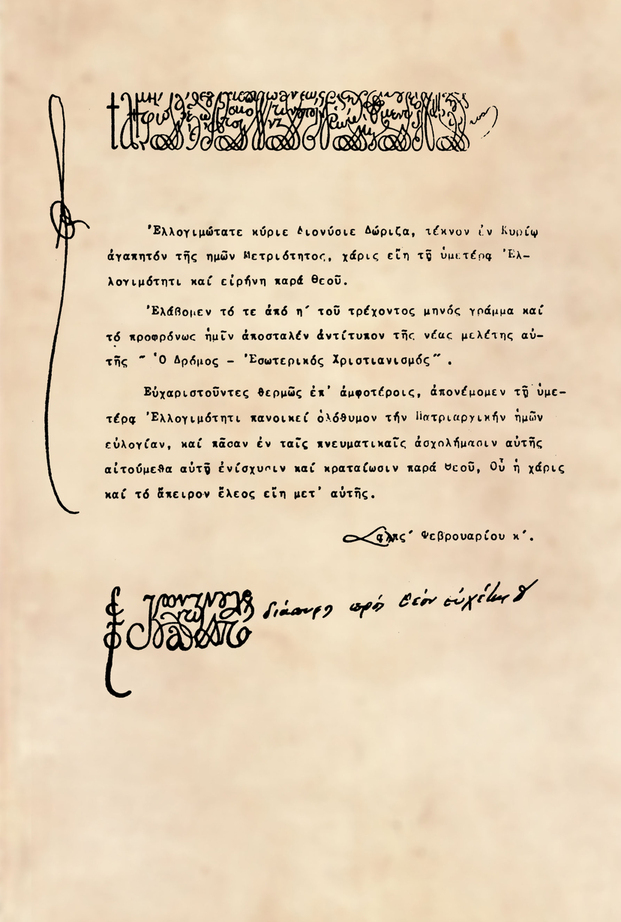 Ἐλλογιμώτατε κύριε Διονύσιε Δώριζα, τέκνον ἐν Κυρίῳ
ἀγαπητόν τῆς ἡμῶν Μετριότητος, χάρις εἴη τῇ ὑμετέρᾳ Ἐλ-
λογιμότητι καί εἰρήνη παρά Θεοῦ.
Ἐλάβομεν τό τε ἀπό η΄ τοῦ τρέχοντος μηνός γράμμα καί
τό προφρόνως ἡμῖν ἀποσταλέν ἀντίτυπον τῆς νέας μελέτης αὐ-
τῆς " Ὁ Δρόμος - Ἐσωτερικός Χριστιανισμός" .
Εὐχαριστοῦντες θερμῶς ἐπ' ἀμφοτέροις, ἀπονέμομεν τῇ ὑμε-
τέρᾳ Ἐλλογιμότητι πανοικεί ὁλόθυμον τήν Πατριαρχικήν ἡμῶν
εὐλογίαν, καί πᾶσαν ἐν ταῖς πνευματικαῖς ἀσχολήμασιν αὐτῆς
αἰτούμεθα αὐτῇ ἐνίσχυσιν καί κραταίωσιν παρά Θεοῦ, Οὗ ἡ χάρις
καί τό ἄπειρον ἔλεος εἴη μετ' αὐτῆς.
Φεβρουαρίου κ΄.
διάπυρος πρός Θεόν εὐχέτης